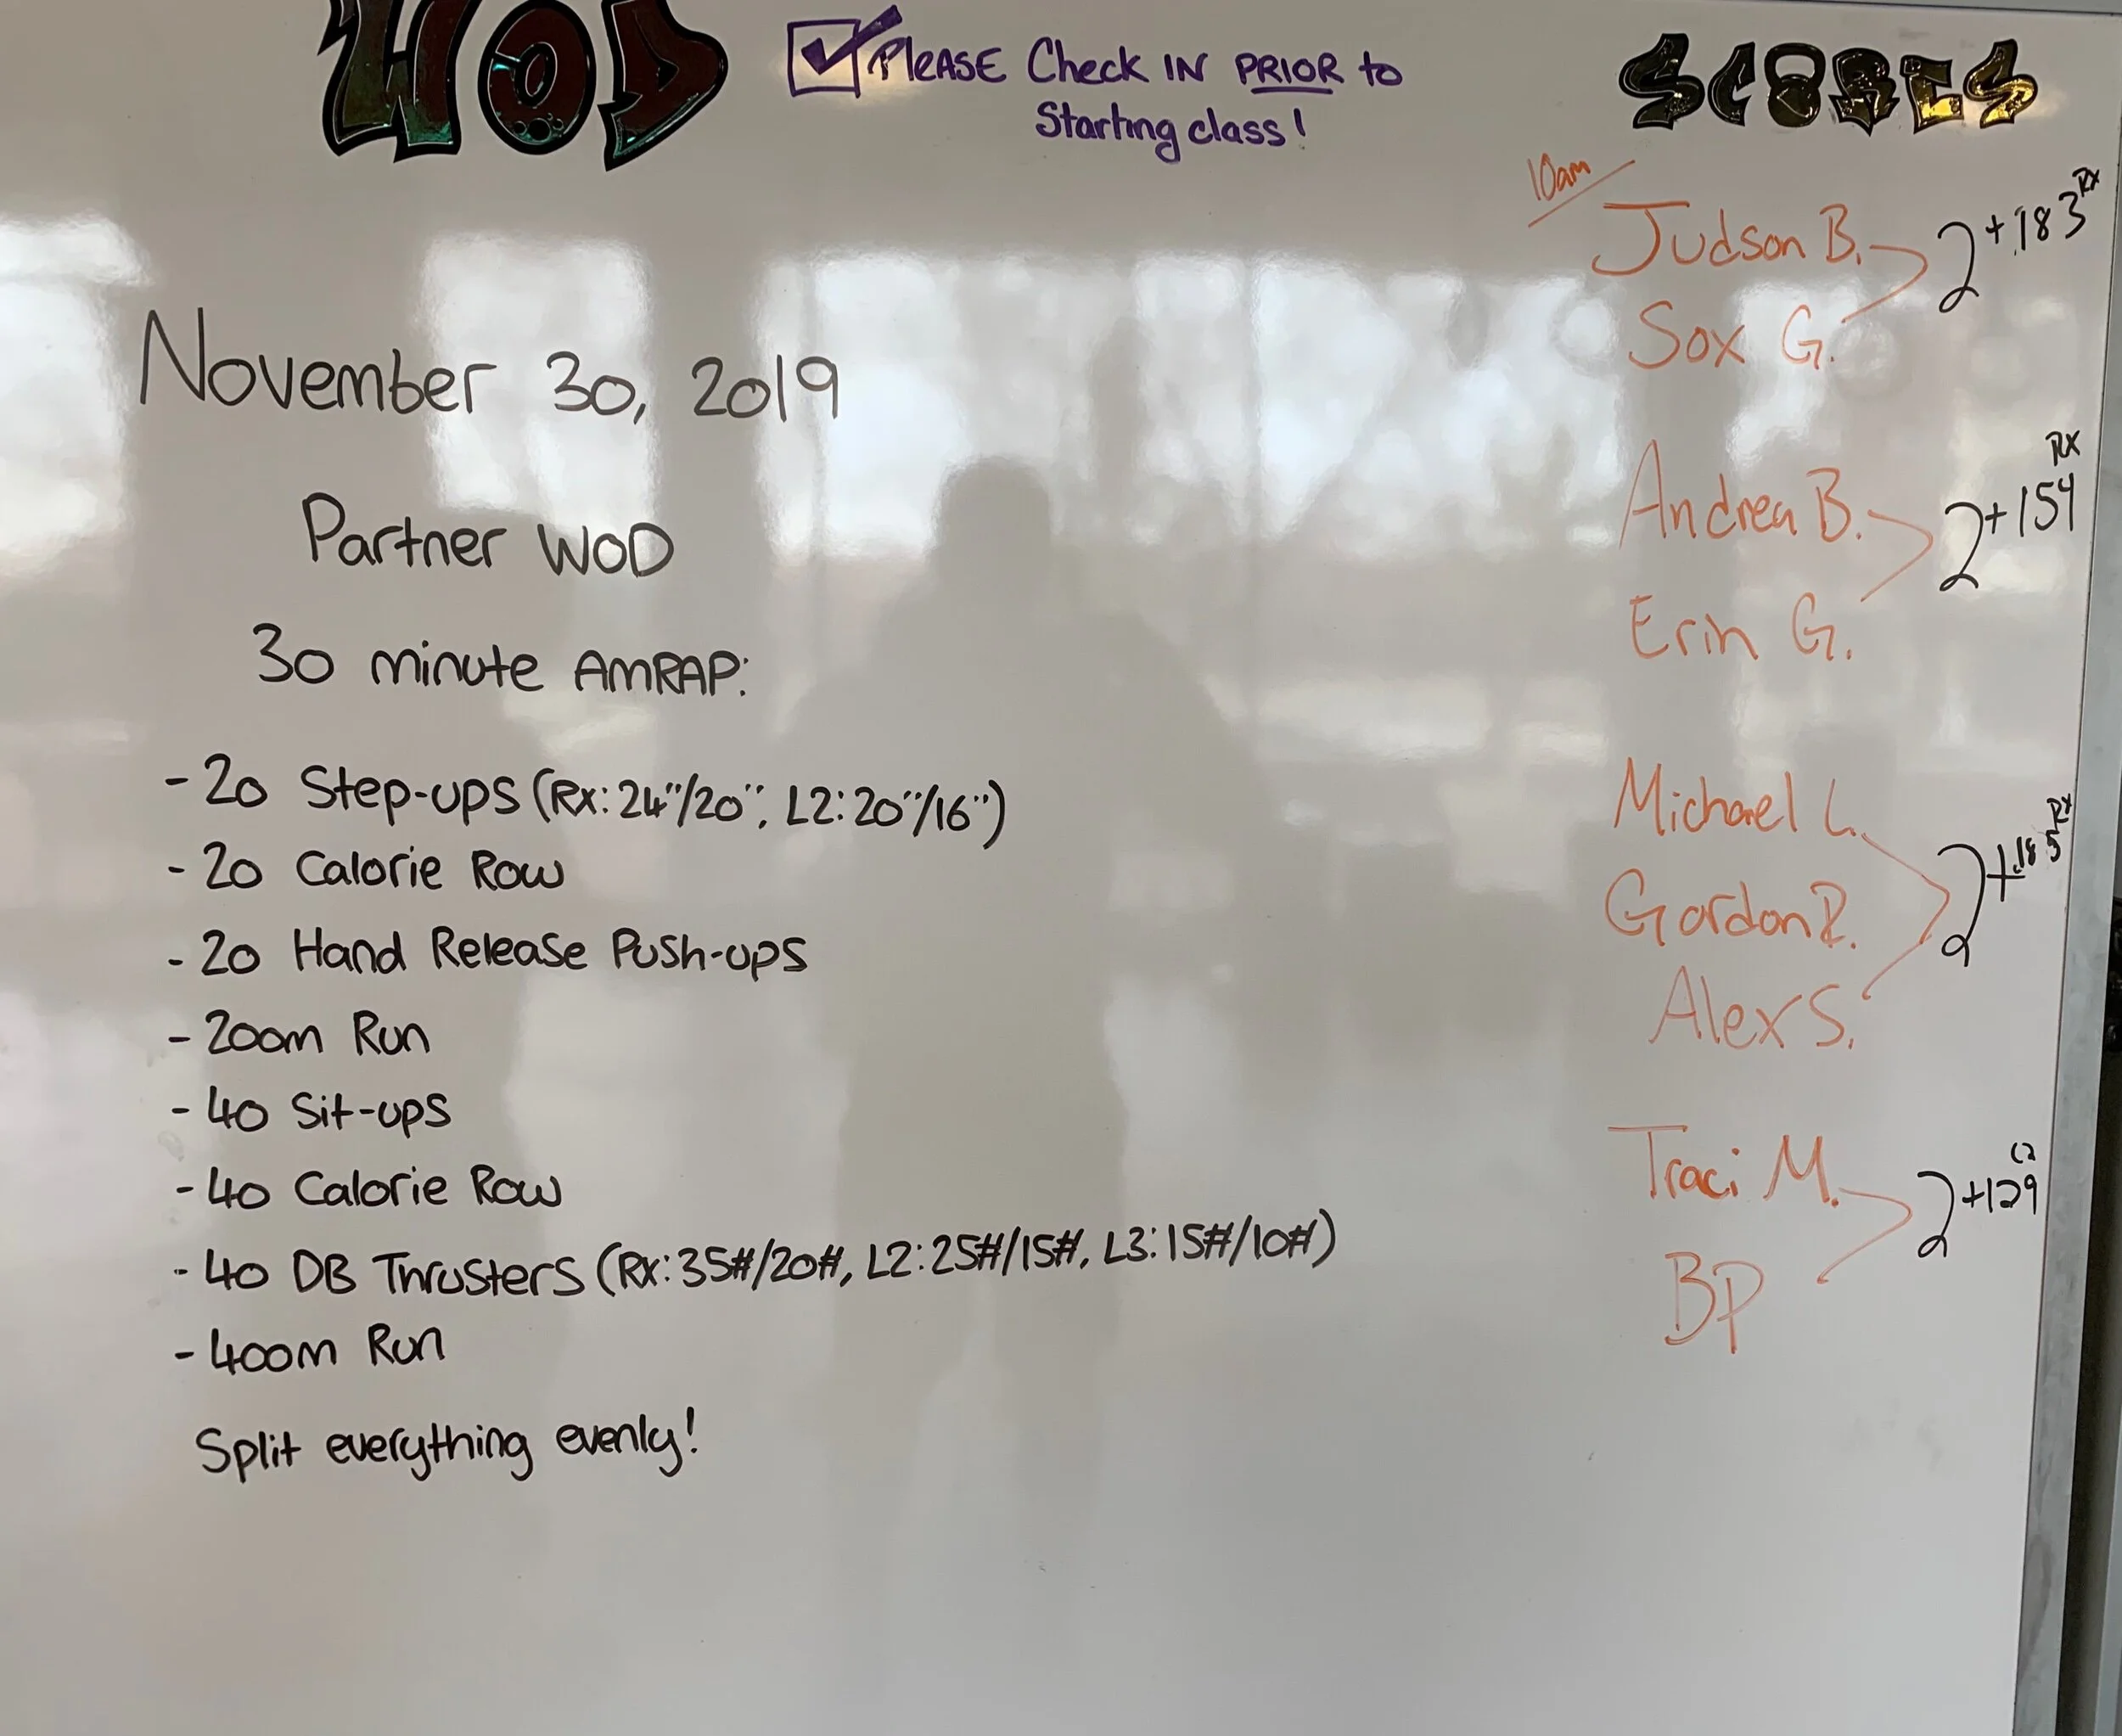 WOD
PLEASE Check IN PRIOR to
Starting class!
SCORES
November 30, 2019
Partner WOD
30 minute AMRAP:
- 20 Step-ups (Rx: 24"/20", L2: 20"/16")
- 20 Calorie Row
- 20 Hand Release Push-ups
- 200m Run
- 40 Sit-ups
- 40 Calorie Row
- 40 DB Thrusters (Rx: 35#/20#, L2: 25#/15#, L3: 15#/10#)
- 400m Run
Split everything evenly!
10am
Judson B.
Sox G.
2+183 Rx
Andrea B.
Erin G.
2+154 Rx
Michael L.
Gordon R.
Alex S.
2+185 Rx
Traci M.
BP
2+129